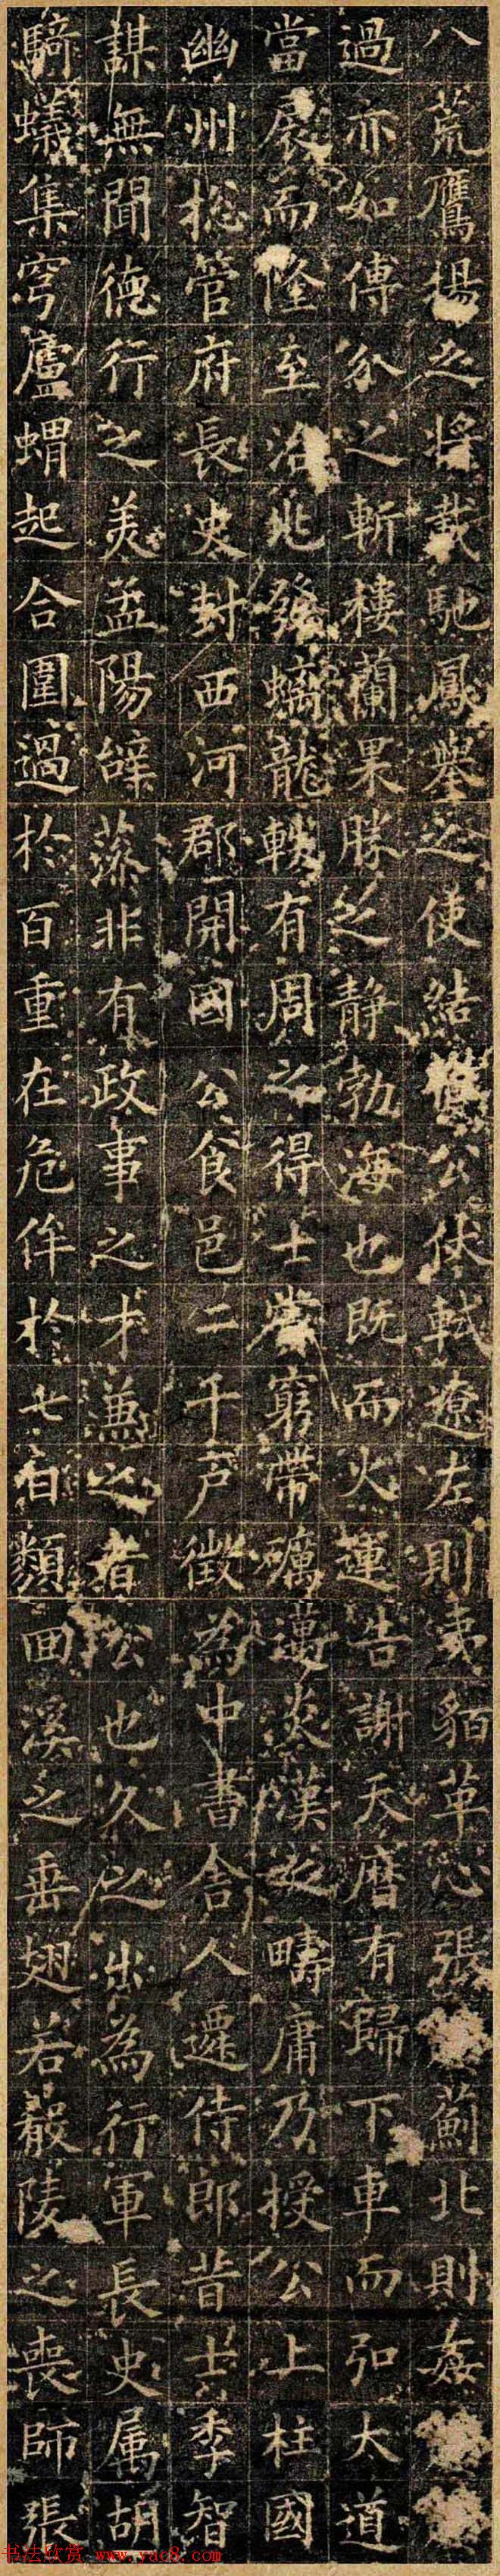 八荒鷹揚之將載馳鳳舉之使結公伏軾遼左則夷貊革心張薊北則姦
過亦如傅介之斬樓蘭果勝之静勃海也既而火運告謝天曆有歸下車而弘太道
當扆而隆至治兆發螭龍軼有周之得士裳窮帶礪邁炎漢之疇庸乃授公上柱國
幽州揔管府長史封西河郡開國公食邑二千户徵為中書舍人遷侍郎昔士季智
謀無聞德行之美孟陽辞藻非有政事之才兼之者公也久之出為行軍長史属胡
騎蟻集穹廬蝟起合圍過於百重在危侔於七日類囬溪之垂翅若嚴陵之喪師張
书法欣赏 www.yac8.com